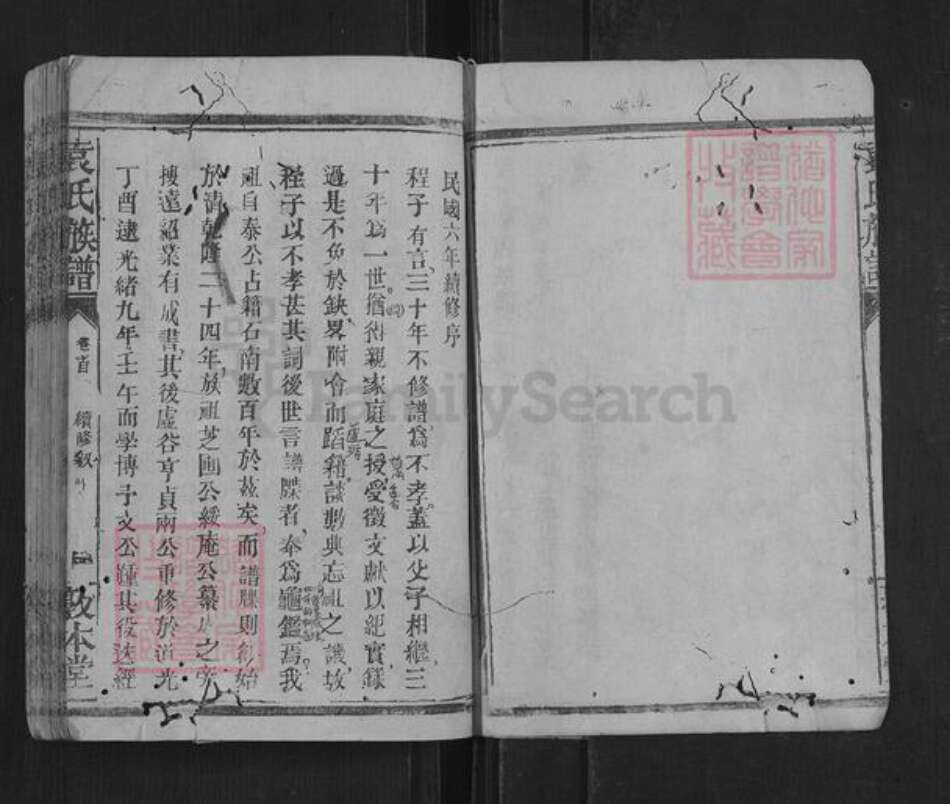 民國六年續修序
程子有言三十年不修譜為不孝蓋以父子相繼三
十年為一世猶得親家庭之授受徵文獻以紀實錄
過是不免於缺畧附會而蹈籍談數典忘祖之譏故
程子以不孝甚其詞後世言譜牒者奉為龜鑑焉我
祖自泰公占籍石南數百年於茲矣而譜牒則創始
於清乾隆二十四年族祖芝圃公緩庵公纂
之
搜遠紹業有成書其後虛谷亨貞兩公重修於道光
丁酉逮光緒九年壬午而學博子文公踵其役迭經
袁氏族譜
卷首
續修叙
四
敦本堂
袁氏族譜
FamilySearch